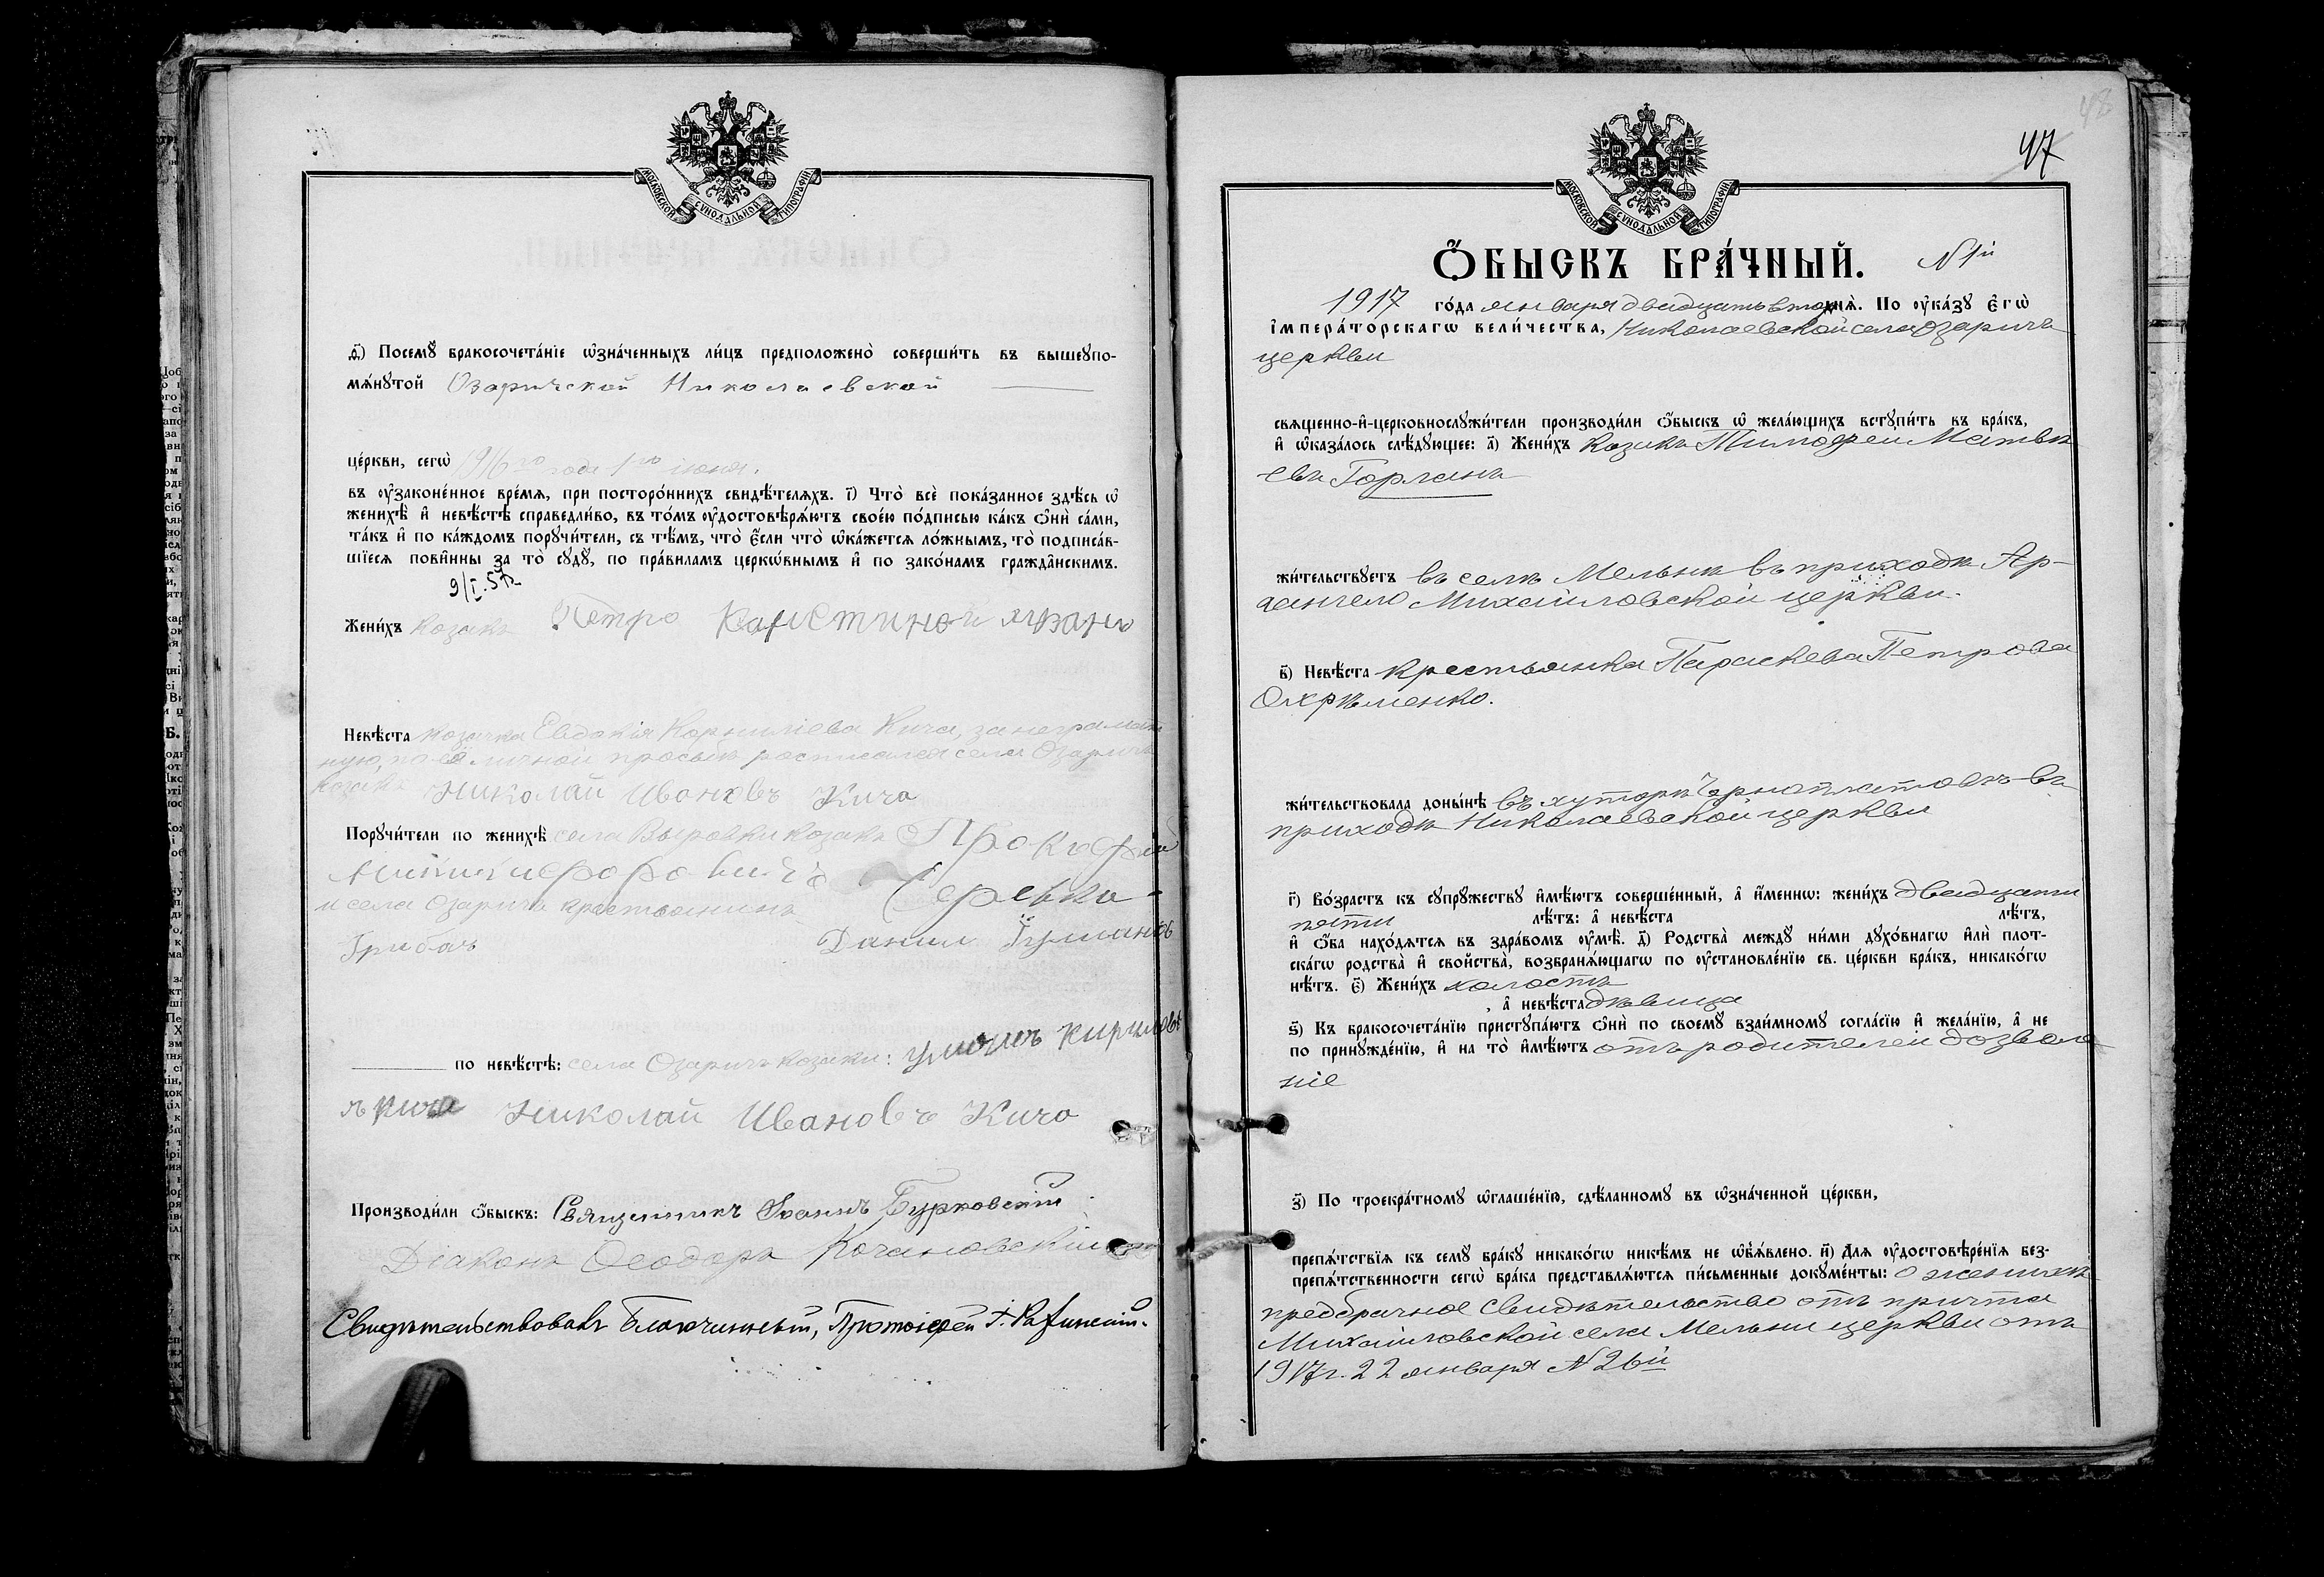 МОСКОВСКОЙ СУНОДАЛЬНОЙ ТИПОГРАФІИ
ѳ҃) Посемꙋ̀ бракосочета́нїе ѡ҆зна́ченныхъ ли́цъ предположено̀ соверши́ть въ вышеꙋпо-
мѧ́нꙋтой Озаричской Николаевской
це́ркви, сегѡ̀ 1916го года 1го іюня.
въ ᲂу҆зако́ненное вре́мѧ, при посторо́ннихъ свидѣ́телѧхъ. і҃) Что̀ всѐ пока́занное здѣ́сь ѡ҆
женихѣ̀ и҆ невѣ́стѣ справедли́во, въ то́мъ ᲂу҆достовѣрѧ́ютъ свое́ю по́дписью ка́къ ѻ҆нѝ са́ми,
та́къ и҆ по ка́ждомъ порꙋчи́тели, съ тѣ́мъ, что̀ є҆́сли что̀ ѡ҆ка́жетсѧ ло́жнымъ, то̀ подписа́в-
шїесѧ пови́нны за то̀ сꙋдꙋ̀, по пра́виламъ церко́внымъ и҆ по зако́намъ гражда́нскимъ.
9/I.
Жени́хъ козакъ Петро
Невѣ́ста козачка Евдокія Корниліева Кича, за неграмат
ную, по ея личной просьбѣ росписался села Озаричъ
козакъ Николай Ивановъ Кичо
Порꙋчи́тели по женихѣ̀ села Выровки козакъ Прокофій
и села Озаричъ крестьянинъ
Грибач Данил
по невѣ́стѣ: села Озаричъ козаки: Кирилов
ъ Кича Николай Ивановъ Кичо
Производи́ли ѻ҆́быскъ: Священникъ Іоаннъ Бурковскій
Діаконъ Ѳеодоръ Кочановскій
Свидѣтельствовалъ Благочинный, Протоіерей
48
47
МОСКОВСКОЙ СУНОДАЛЬНОЙ ТИПОГРАФІИ
Ѻ҆́БЫСКЪ БРА́ЧНЫЙ. N 1й
1917 го́да января двадцать втор днѧ̀. По ᲂу҆ка́зꙋ є҆гѡ̀
і҆мпера́торскагѡ вели́чества, Николаевской села Озаричъ
церкви
свѧщенно-и҆-церковнослꙋжи́тели производи́ли ѻ҆́быскъ ѡ҆ жела́ющихъ встꙋпи́ть въ бра́къ,
и҆ ѡ҆каза́лось слѣ́дꙋющее: а҃) Жени́хъ Козакъ Тимофей Матвѣ
евъ Горланъ
жи́тельствꙋетъ въ селѣ Мельнѣ въ приходѣ Ар-
хангело Михайловской церкви.
в҃) Невѣ́ста крестьянка Параскева Петрова
Охрѣменко.
жи́тельствовала доны́нѣ въ хуторѣ Чорноплатовѣ въ
приходѣ Николаевской церкви
г҃) Во́зрастъ къ сꙋпрꙋ́жествꙋ и҆мѣ́ютъ соверше́нный, а҆ и҆́менно: жени́хъ двадцати
пяти лѣ́тъ: а҆ невѣ́ста лѣ́тъ,
и҆ ѻ҆́ба нахо́дѧтсѧ въ здра́вомъ ᲂу҆мѣ̀. д҃) Родства̀ междꙋ̀ ни́ми дꙋхо́внагѡ и҆лѝ плот-
ска́гѡ родства̀ и҆ сво́йства, возбранѧ́ющагѡ по ᲂу҆становле́нїю св. це́ркви бра́къ, никако́гѡ
нѣ́тъ. є҃) Жени́хъ холостъ
, а҆ невѣ́ста дѣвица
ѕ҃) Къ бракосочета́нїю пристꙋпа́ютъ ѻ҆нѝ по своемꙋ̀ взаи́мномꙋ согла́сїю и҆ жела́нїю, а҆ не
по принꙋжде́нїю, и҆ на то̀ и҆мѣ́ютъ отъ родителей дозволе
ніе
з҃) По троекра́тномꙋ ѡ҆глаше́нїю, сдѣ́ланномꙋ въ ѡ҆зна́ченной це́ркви,
препѧ́тствїѧ къ семꙋ̀ бра́кꙋ никако́гѡ никѣ́мъ не ѡ҆б̾ѧ́влено. и҃) Длѧ ᲂу҆достовѣре́нїѧ без-
препѧ́тственности сегѡ̀ бра́ка представлѧ́ютсѧ пи́сьменные докꙋме́нты: о женихѣ
предбрачное свидѣтельство отъ причта
Михайловской села Мельни церкви отъ
1917г. 22 января N 26й